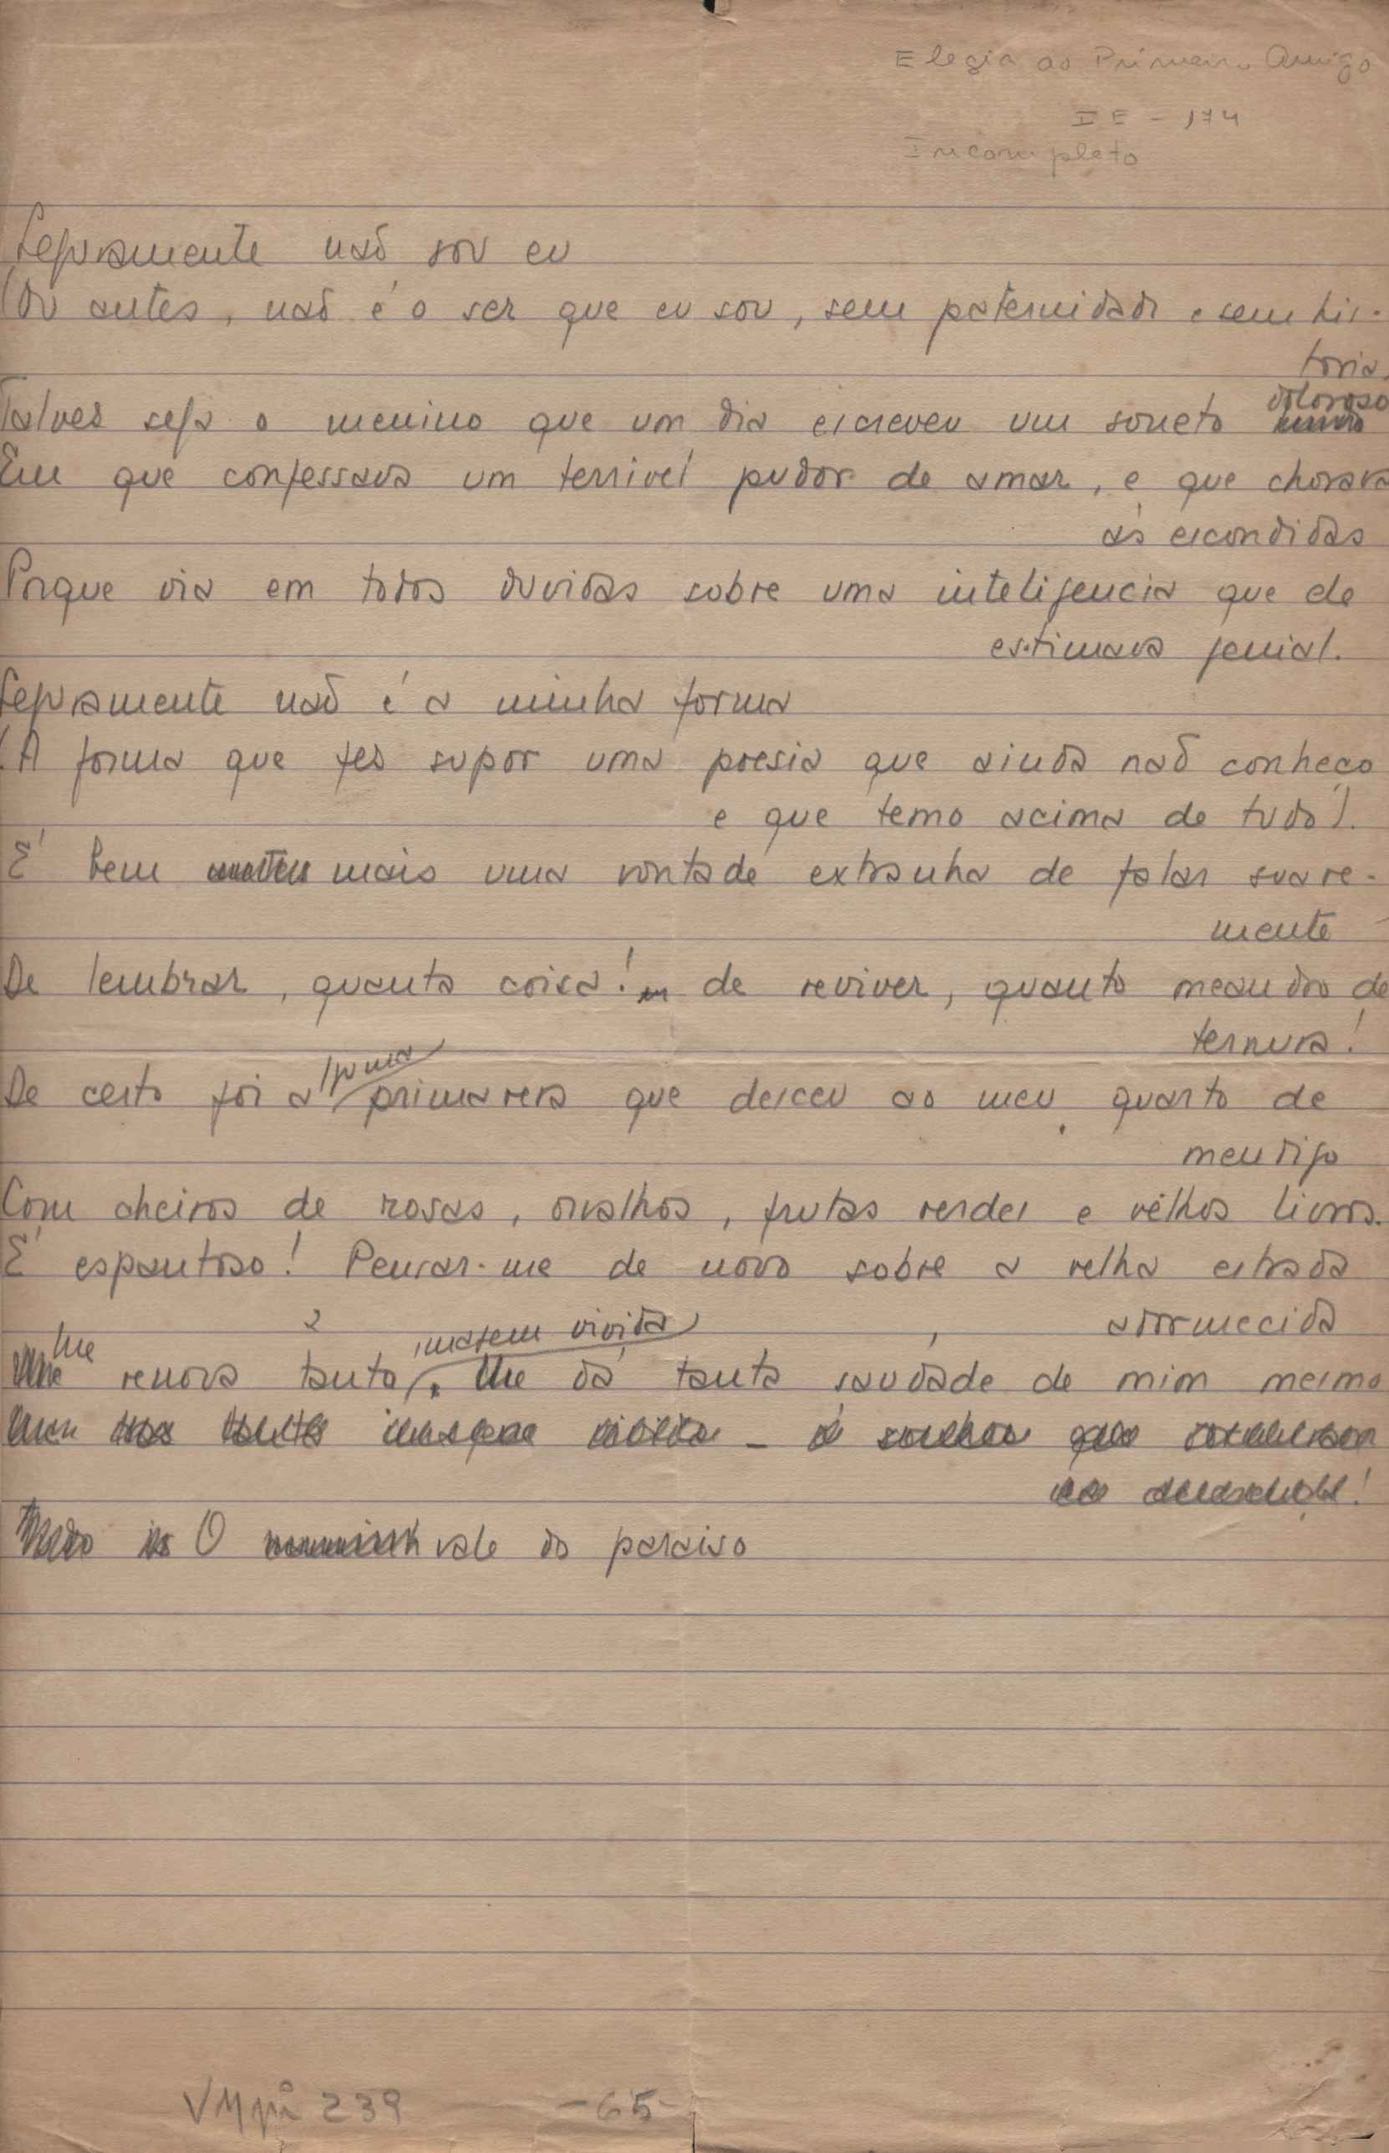 Elegia ao Primeiro Amigo
I E - 174
Incompleto
Seguramente não sou eu
(Ou antes, não é o ser que eu sou, sem paternidade e sem his-
toria.
Talvez seja o menino que um dia escreveu um soneto doloroso
Em que confessava um terrivel pudor de amar, e que chorava
ás escondidas
Porque via em todos duvidas sobre uma inteligencia que ele
estimava genial.
Seguramente não é a minha forma
(A forma que fez supor uma poesia que ainda não conheço
e que temo acima de tudo).
É bem mais uma vontade extranha de falar suave-
mente
De lembrar, quanta coisa! de reviver, quanto meandro de
ternura!
De certo foi a primavera que desceu ao meu quarto de
mendigo
Com cheiros de rosas, orvalhos, frutas verdes e velhos livros.
É espantoso! Pensar-me de novo sobre a velha estrada
adormecida
imagem vivida
Me renova tanto, me dá tanta saudade de mim mesmo
O vale do paraiso
VMpi 239 -65-